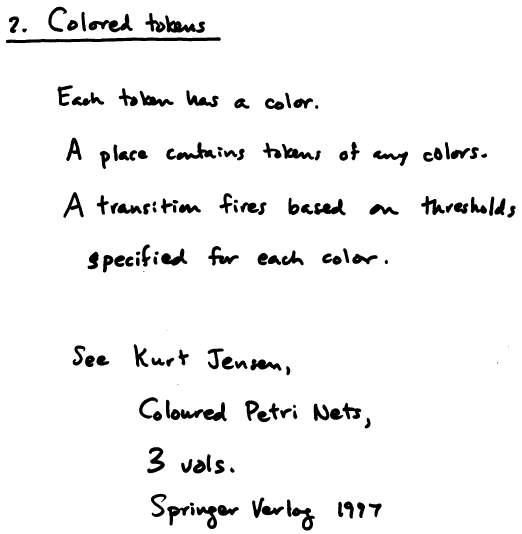 2. Colored tokens
Each token has a color.
A place contains tokens of any colors.
A transition fires based on thresholds
specified for each color.
See Kurt Jensen,
Coloured Petri Nets,
3 vols.
Springer Verlag 1997